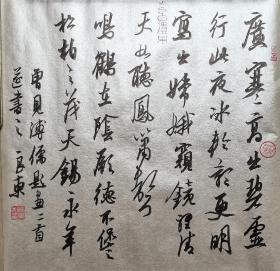 廣寒高出碧虛
行此夜冰輪影更明
寫出嫦娥窺鏡裡清
天如聽鳳簫聲
鳴鶴在陰厥德不
松柏之茂天錫永年
曾見溥儒題畫二首
並書之